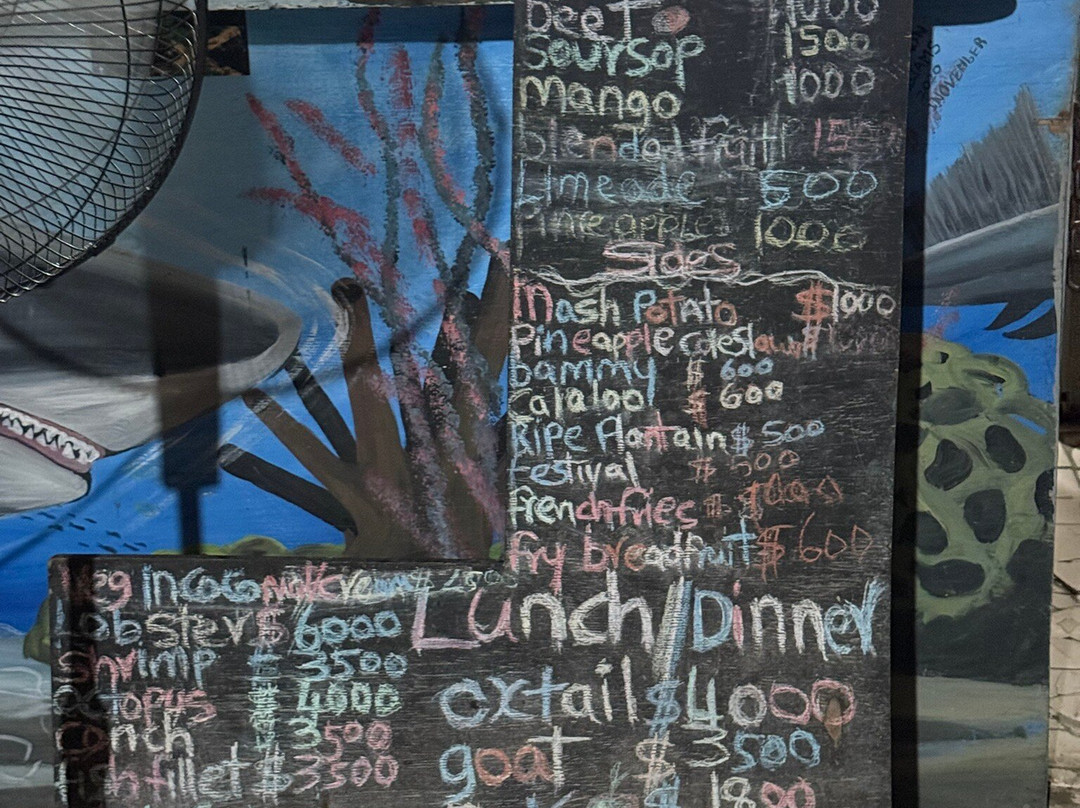 Beet 1000
Soursop 1500
Mango 1000
blended fruit
Limeade 500
Pineapple 1000
Sides
Mash Potato $1000
Pineapple coleslaw $1000
bammy $ 600
Calaloo $ 600
Ripe Plantain $ 500
festival $ 500
french fries $ 1000
fry breadfruit $ 600
Veg in Coconut Cream $ 2500
Lobster $ 6000
Shrimp 3500
Octopus 4000
Conch 3500
fish fillet $ 3500
Lunch/Dinner
oxtail $ 4000
goat $ 3500
NOVEMBER